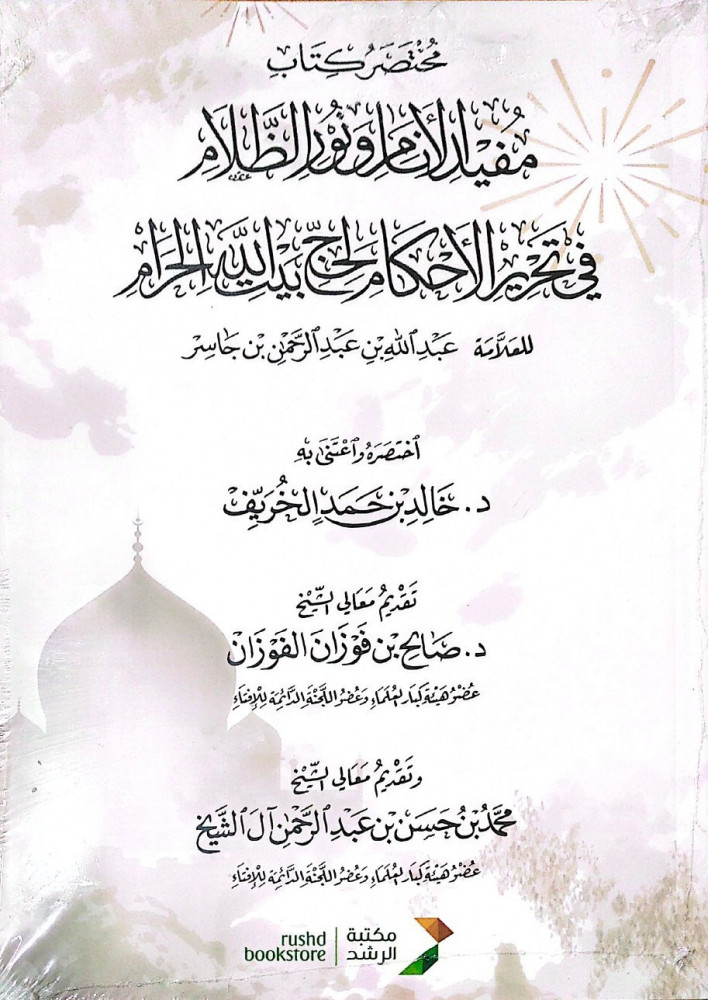 مُختَصَرُ كِتَابِ
مُفِيدِ الأَنَامِ وَنُورِ الظَّلَامِ
فِي تَحْرِيرِ الأَحْكَامِ لِحَجِّ بَيْتِ اللَّهِ الحَرَامِ
للعَلَّامَة عَبْدِ اللهِ بْنِ عَبْدِ الرَّحْمٰنِ بْنِ جَاسِر
اخْتَصَرَهُ وَاعْتَنَى بِهِ
د. خَالِدِ بْنِ حَمَدٍ الخُرَيِّفْ
تَقْدِيمُ مَعَالِي الشَّيْخِ
د. صَالِحِ بْنِ فَوْزَانَ الفَوْزَانْ
عُضْوُ هَيْئَةِ كِبَارِ العُلَمَاءِ وَعُضْوُ اللَّجْنَةِ الدَّائِمَةِ لِلْإِفْتَاءِ
وَتَقْدِيمُ مَعَالِي الشَّيْخِ
مُحَمَّدُ بْنُ حَسَنِ بْنِ عَبْدِ الرَّحْمٰنِ آلِ الشَّيْخْ
عُضْوُ هَيْئَةِ كِبَارِ العُلَمَاءِ وَعُضْوُ اللَّجْنَةِ الدَّائِمَةِ لِلْإِفْتَاءِ
مكتبة الرشد
rushd bookstore